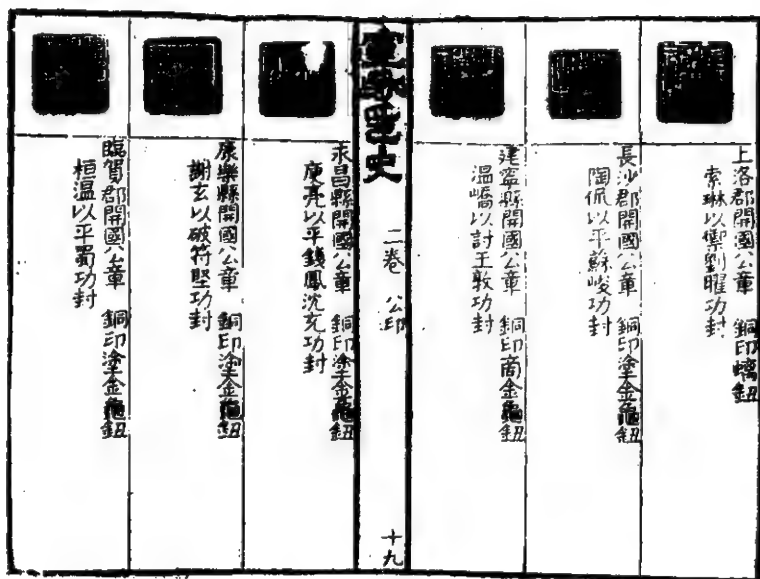 上洛郡開國公章 銅印螭鈕
索琳以禦劉曜功封
長沙郡開國公章 銅印塗金龜鈕
陶侃以平蘇峻功封
建寧縣開國公章 銅印商金龜鈕
溫嶠以討王敦功封
史
二卷 公印
十九
永昌縣開國公章 銅印塗金龜鈕
庾亮以平錢鳳沈充功封
康樂縣開國公章 銅印塗金龜鈕
謝玄以破苻堅功封
臨賀郡開國公章 銅印塗金龜鈕
桓溫以平蜀功封